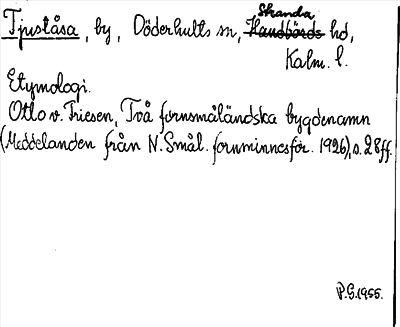 Tjuståsa, by, Döderhults sn, Stranda hd,
Kalm. l.
Etymologi.
Otto v. Friesen, Två fornsmåländska bygdenamn
(Meddelanden från N. Smål. fornminnesför. 1926), s. 28 ff.
P.G. 1955.